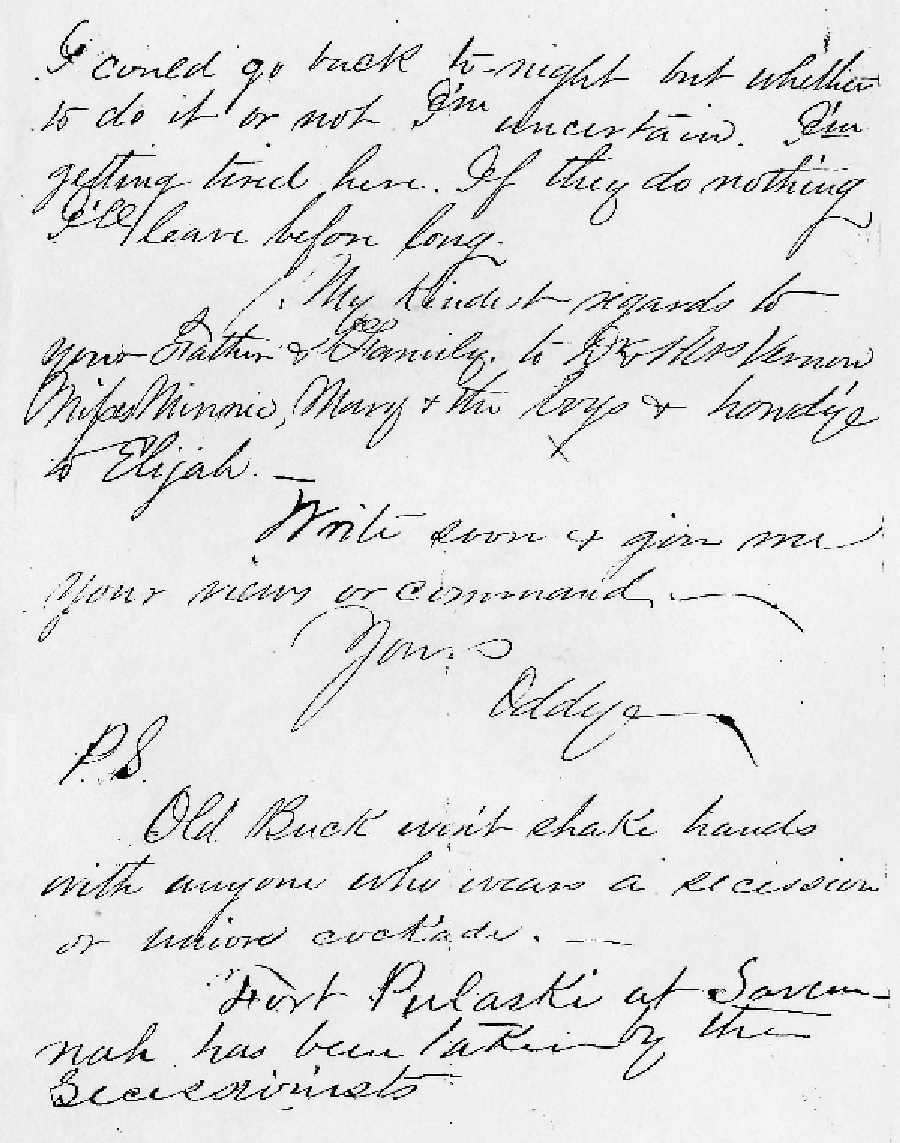 I could go back to-night but whether
to do it or not I'm uncertain. I'm
getting tired here. If they do nothing
I'll leave before long.
My kindest regards to
your Father & Family. to Dr & Mrs Vernon
Misses Minnie, Mary & the boys & hondye
to Elijah. —
Write soon & give me
your views or command. —
Yours
Oddye
P.S.
Old Buck won't shake hands
with anyone who wears a secession
or union cockade. —
Fort Pulaski at Savan-
nah has been taken by the
Secessionists